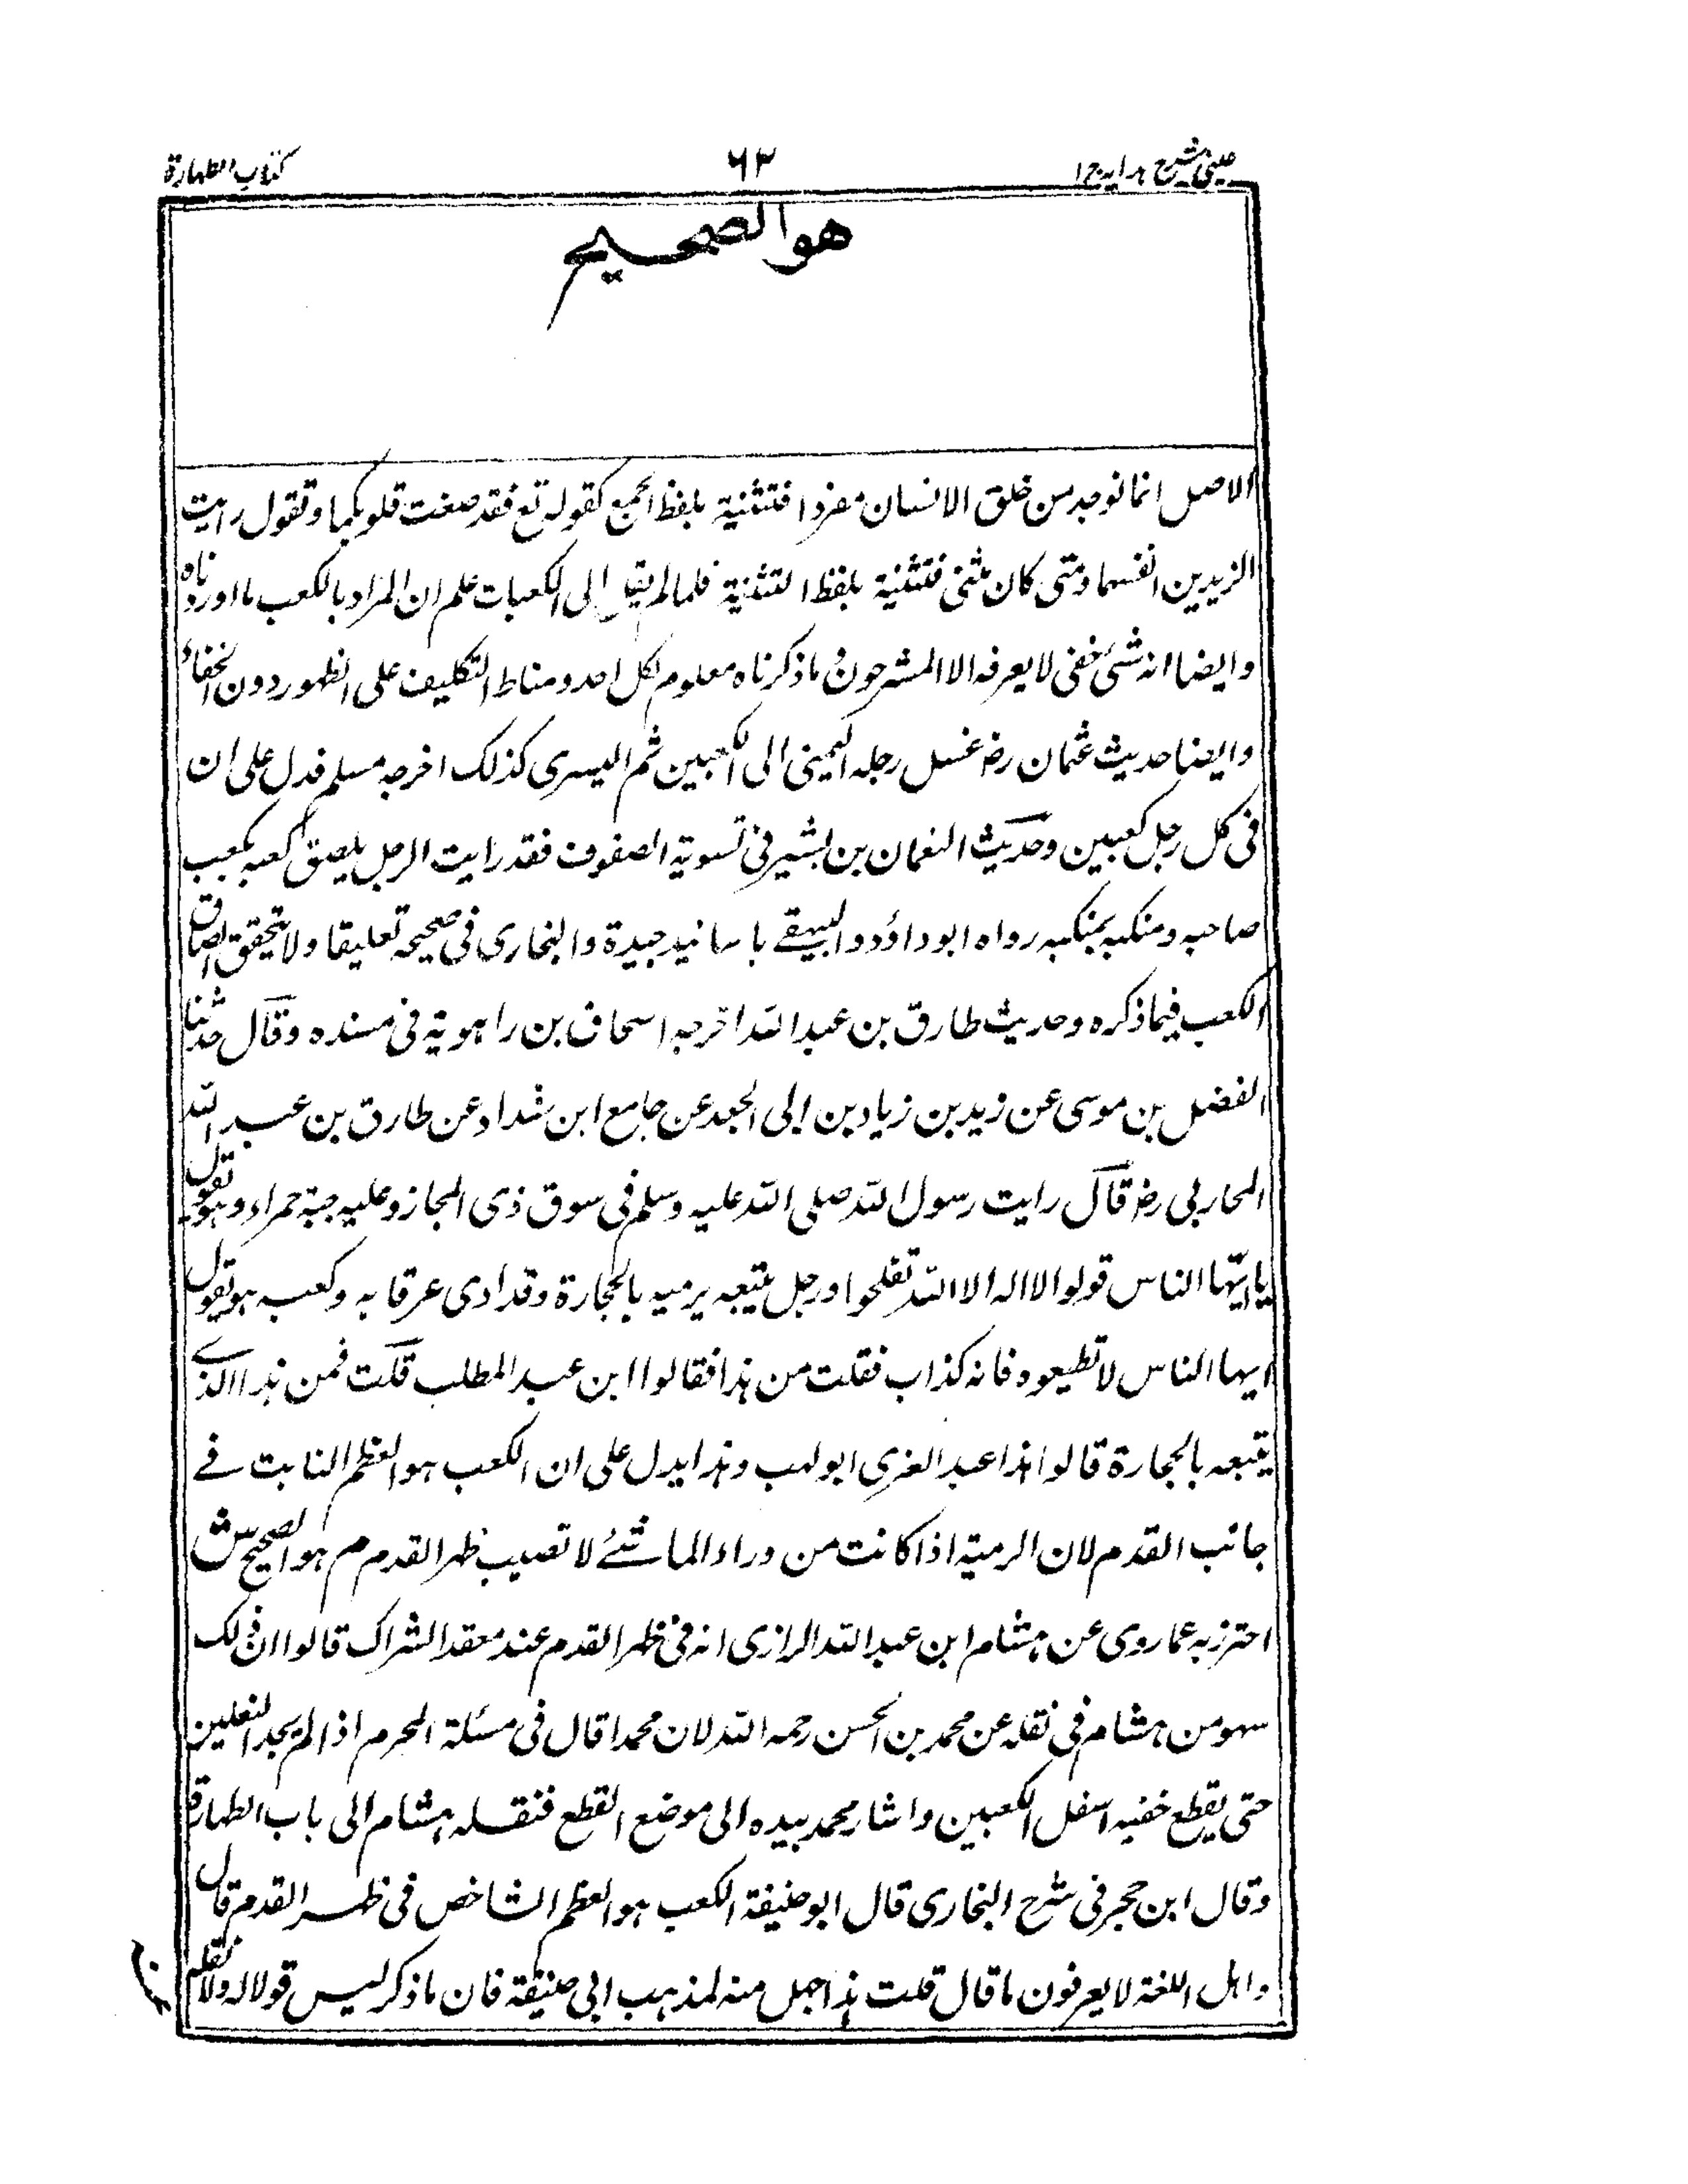 عینی شرح ہدایہ ج ١ ٦٣ کتاب الطہارة
هو الصحیح
الاصل انما توجد من خلق الانسان مفردا فتثنیة بلفظ الجمع کقولہ تع فقد صغت قلوبکما وتقول رایت
الزیدین انفسہما ومتی کان مثنی فتثنیة بلفظ التثنیة فلما لم یقل الی الکعبات علم ان المراد بالکعب ما اوردناہ
وایضا انہ شیٔ خفی لا یعرفہ الا المشرحون وما ذکرناہ معلوم لکل احد ومناط التکلیف علی الظہور دون الخفاء
وایضا حدیث عثمان رضہ غسل رجلہ الیمنی الی الکعبین ثم الیسری کذلک اخرجہ مسلم فدل علی ان
فی کل رجل کعبین وحدیث النعمان بن بشیر فی تسویة الصفوف فقد رایت الرجل یلصق کعبہ بکعب
صاحبہ ومنکبہ بمنکبہ رواہ ابو داؤد والبیہقے باسانید جیدة والبخاری فی صحیحہ تعلیقا ولا یتحقق الصاق
الکعب فیما ذکرہ وحدیث طارق بن عبد اللہ اخرجہ اسحاق بن راہویة فی مسندہ وقال حدثنا
الفضل بن موسی عن زید بن زیاد بن ابی الجعد عن جامع ابن شداد عن طارق بن عبد اللہ
المحاربی رضہ قال رایت رسول اللہ صلی اللہ علیہ وسلم فی سوق ذی المجاز وعلیہ جبة حمراء وہو یقول
یا ایہا الناس قولوا لا الہ الا اللہ تفلحوا ورجل یتبعہ یرمیہ بالحجارة وقد ادمی عرقابہ وکعبہ ہو یقول
ایہا الناس لا تطیعوہ فانہ کذاب فقلت من ہذا فقالوا ابن عبد المطلب قلت فمن ہذا الذے
یتبعہ بالحجارة قالوا ہذا عبد العزی ابو لہب وہذا یدل علی ان الکعب ہو العظم الناتب فے
جانب القدم لان الرمیة اذا کانت من وراء الماشئے لا تصیب ظہر القدم م ہو الصحیح ش
احترز بہ عما روی عن ہشام ابن عبد اللہ الرازی انہ فی ظہر القدم عند معقد الشراک قالوا ان ذلک
سہو من ہشام فی نقلہ عن محمد بن الحسن رحمہ اللہ لان محمدا قال فی مسئلة المحرم اذا لم یجد النعلین
حتی یقطع خفیہ اسفل الکعبین واشار محمد بیدہ الی موضع القطع فنقلہ ہشام الی باب الطہارة
وقال ابن حجر فی شرح البخاری قال ابو حنیفة الکعب ہو العظم الشاخص فی ظہر القدم قال
واہل اللغة لا یعرفون ما قال قلت ہذا جہل منہ لمذہب ابی حنیفة فان ما ذکر لیس قولا لہ ولا نقلہ